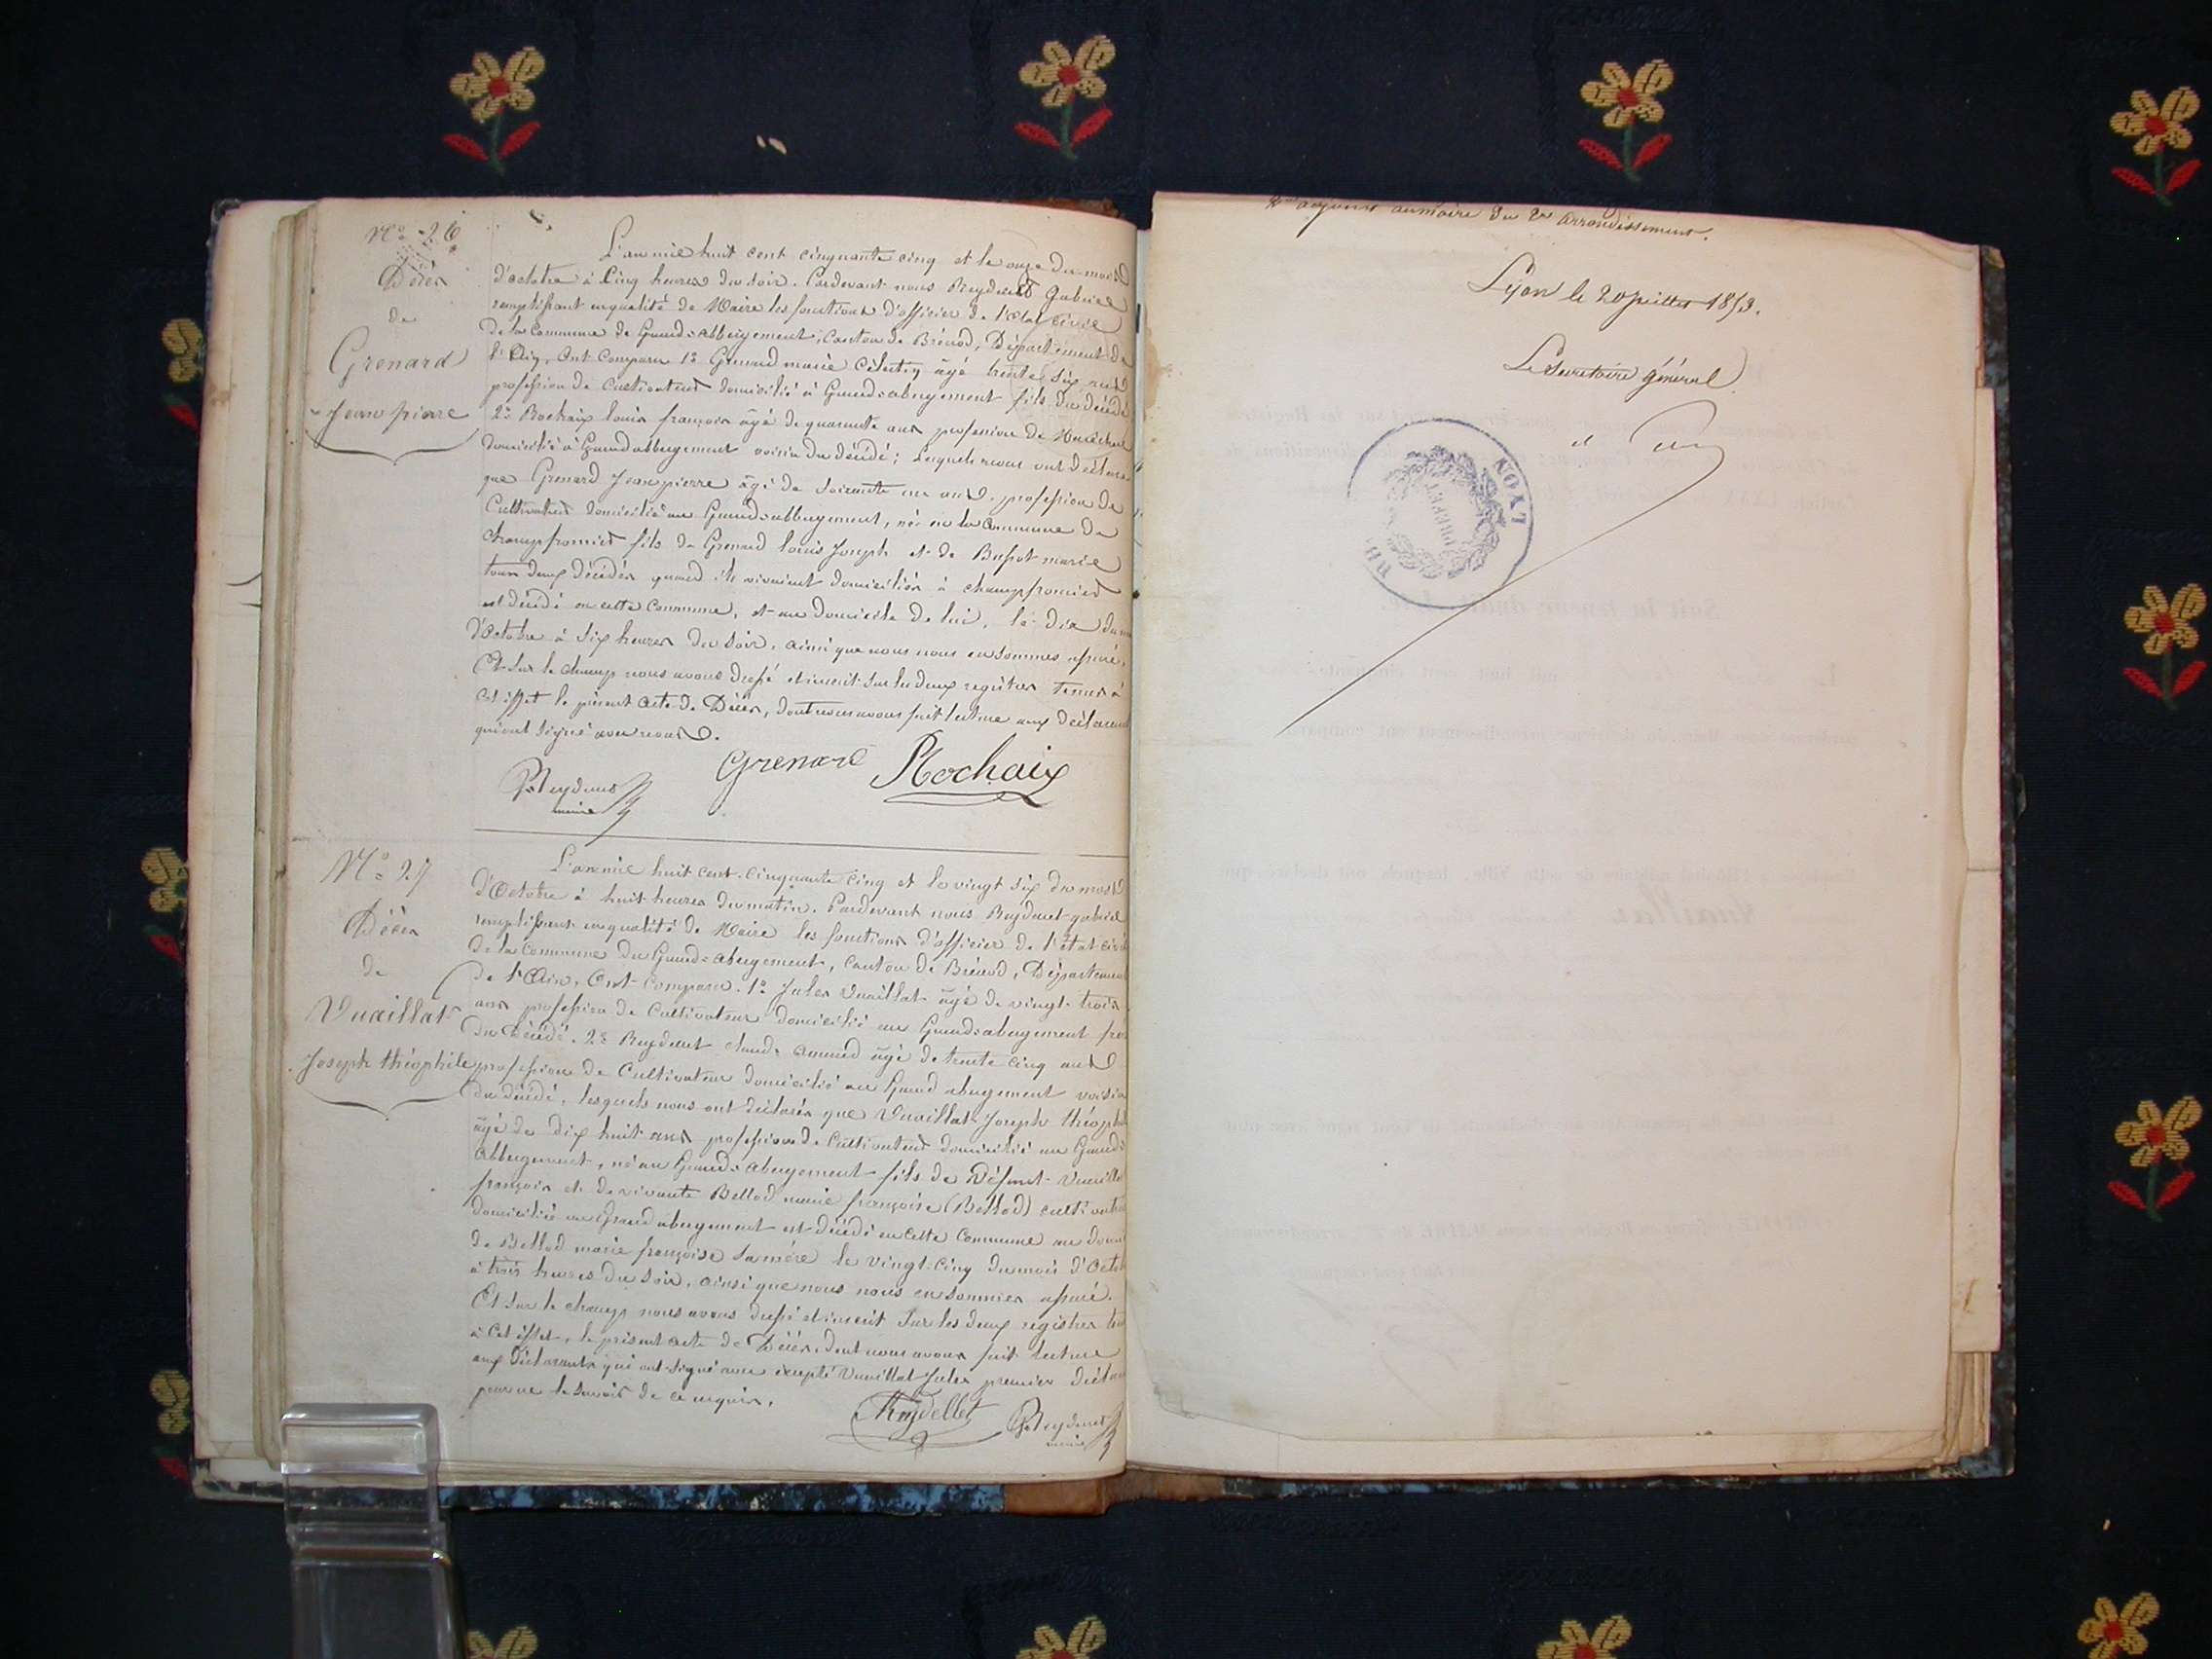 N° 26
Décès
de
Grenard
Jean pierre
L'an mil huit cent cinquante cinq et le onze du mois
d'octobre à Cinq heures du soir. Pardevant nous Reydellet Gabriel
remplissant en qualité de Maire les fonctions d'officier de l'état civil
de la commune de Grand=abbergement, Canton de Brénod, Département de
l'Ain, Ont Comparu 1° Grenard marie Célestin âgé trente six ans
profession de Cultivateur domicilié à Grand=abergement fils du décédé
2° Rochaix louis françois âgé de quarante ans profession de Maréchal
domicilié à Grand abbergement voisin du décédé; Lesquels nous ont déclaré
que Grenard Jean pierre âgé de soixante un ans profession de
Cultivateur domicilié au Grand=abbergement, né en la Commune de
Champfromier fils de Grenard louis Joseph et de marie
tous deux décédés quand ils vivaient domiciliés à champfromier
est décédé en cette Commune, et au domicile de lui, le dix du
d'Octobre à six heures du soir, ainsi que nous nous en sommes assuré,
Et Sur le champ nous avons dressé et inscrit sur les deux registres tenus à
cet effet le présent acte de Décès, dont nous avons fait lecture aux déclarants
qui ont signé avec nous.
Grenard Rochaix
Reydellet
maire
N° 27
Décès
de
Vuaillat
Joseph théophile
L'an mil huit cent cinquante cinq et le vingt six du mois
d'Octobre à huit heures du matin. Pardevant nous Reydellet gabriel
remplissant en qualité de Maire les fonctions d'officier de l'état civil
de la Commune du Grand=abergement, Canton de Brénod, Département
de l'Ain, Ont Comparu. 1° Jules Vuaillat âgé de vingt trois
ans profession de Cultivateur domicilié au Grand=abergement frère
du Décédé. 2° Reydellet claude âgé de trente cinq ans
profession de Cultivateur domicilié au Grand abergement voisin
du décédé, lesquels nous ont déclarés que Vuaillat Joseph théophile
âgé de dix huit ans profession de Cultivateur domicilié au Grand=
Abbergement, né au Grand=Abergement fils de Défunt Vuaillat
françois et de vivante Bellod marie françoise (Bellod) cultivatrice
domiciliée au Grand abergement est décédé en cette Commune au
de Bellod marie françoise sa mère le vingt-cinq du mois d'
à trois heures du soir, ainsi que nous nous en sommes assuré.
Et Sur le champ nous avons dressé et inscrit sur les deux registres
à cet effet, le présent acte de Décès, dont nous avons fait lecture
aux Déclarants qui ont signé avec excepté Vuaillat Jules premier
pour ne le savoir de ce requis.
Reydellet
Reydellet
maire
au maire du 2e arrondissement.
Lyon le 20 juillet 1853.
Le Secrétaire général
LYON